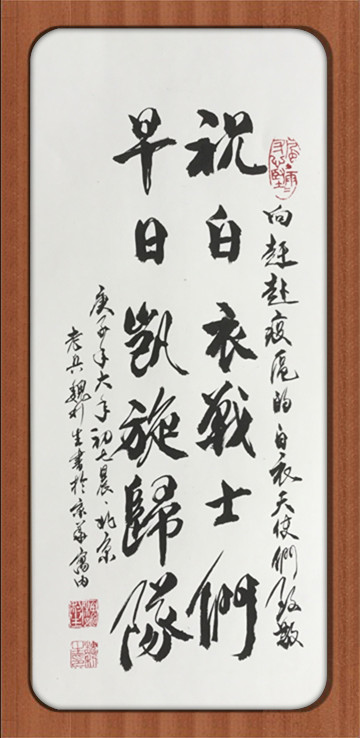 向趕赴疫區的白衣天使們致敬
祝白衣戰士們
早日凱旋歸隊
庚子年大年初七晨、北京
老兵魏利生書於京華寓